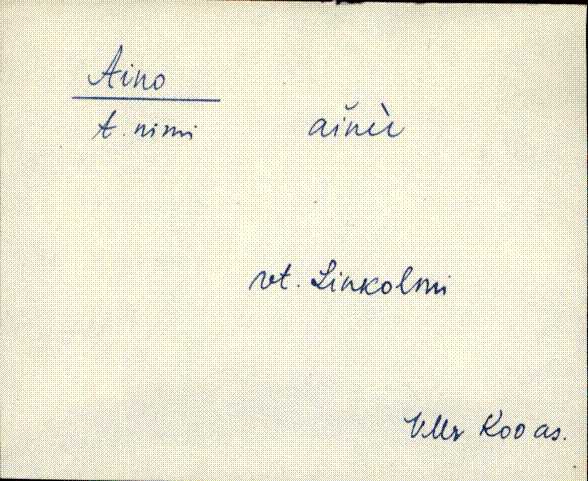 Aino
t. nimi ai̯nè
vt. Linkolmi
VMr Koo as.